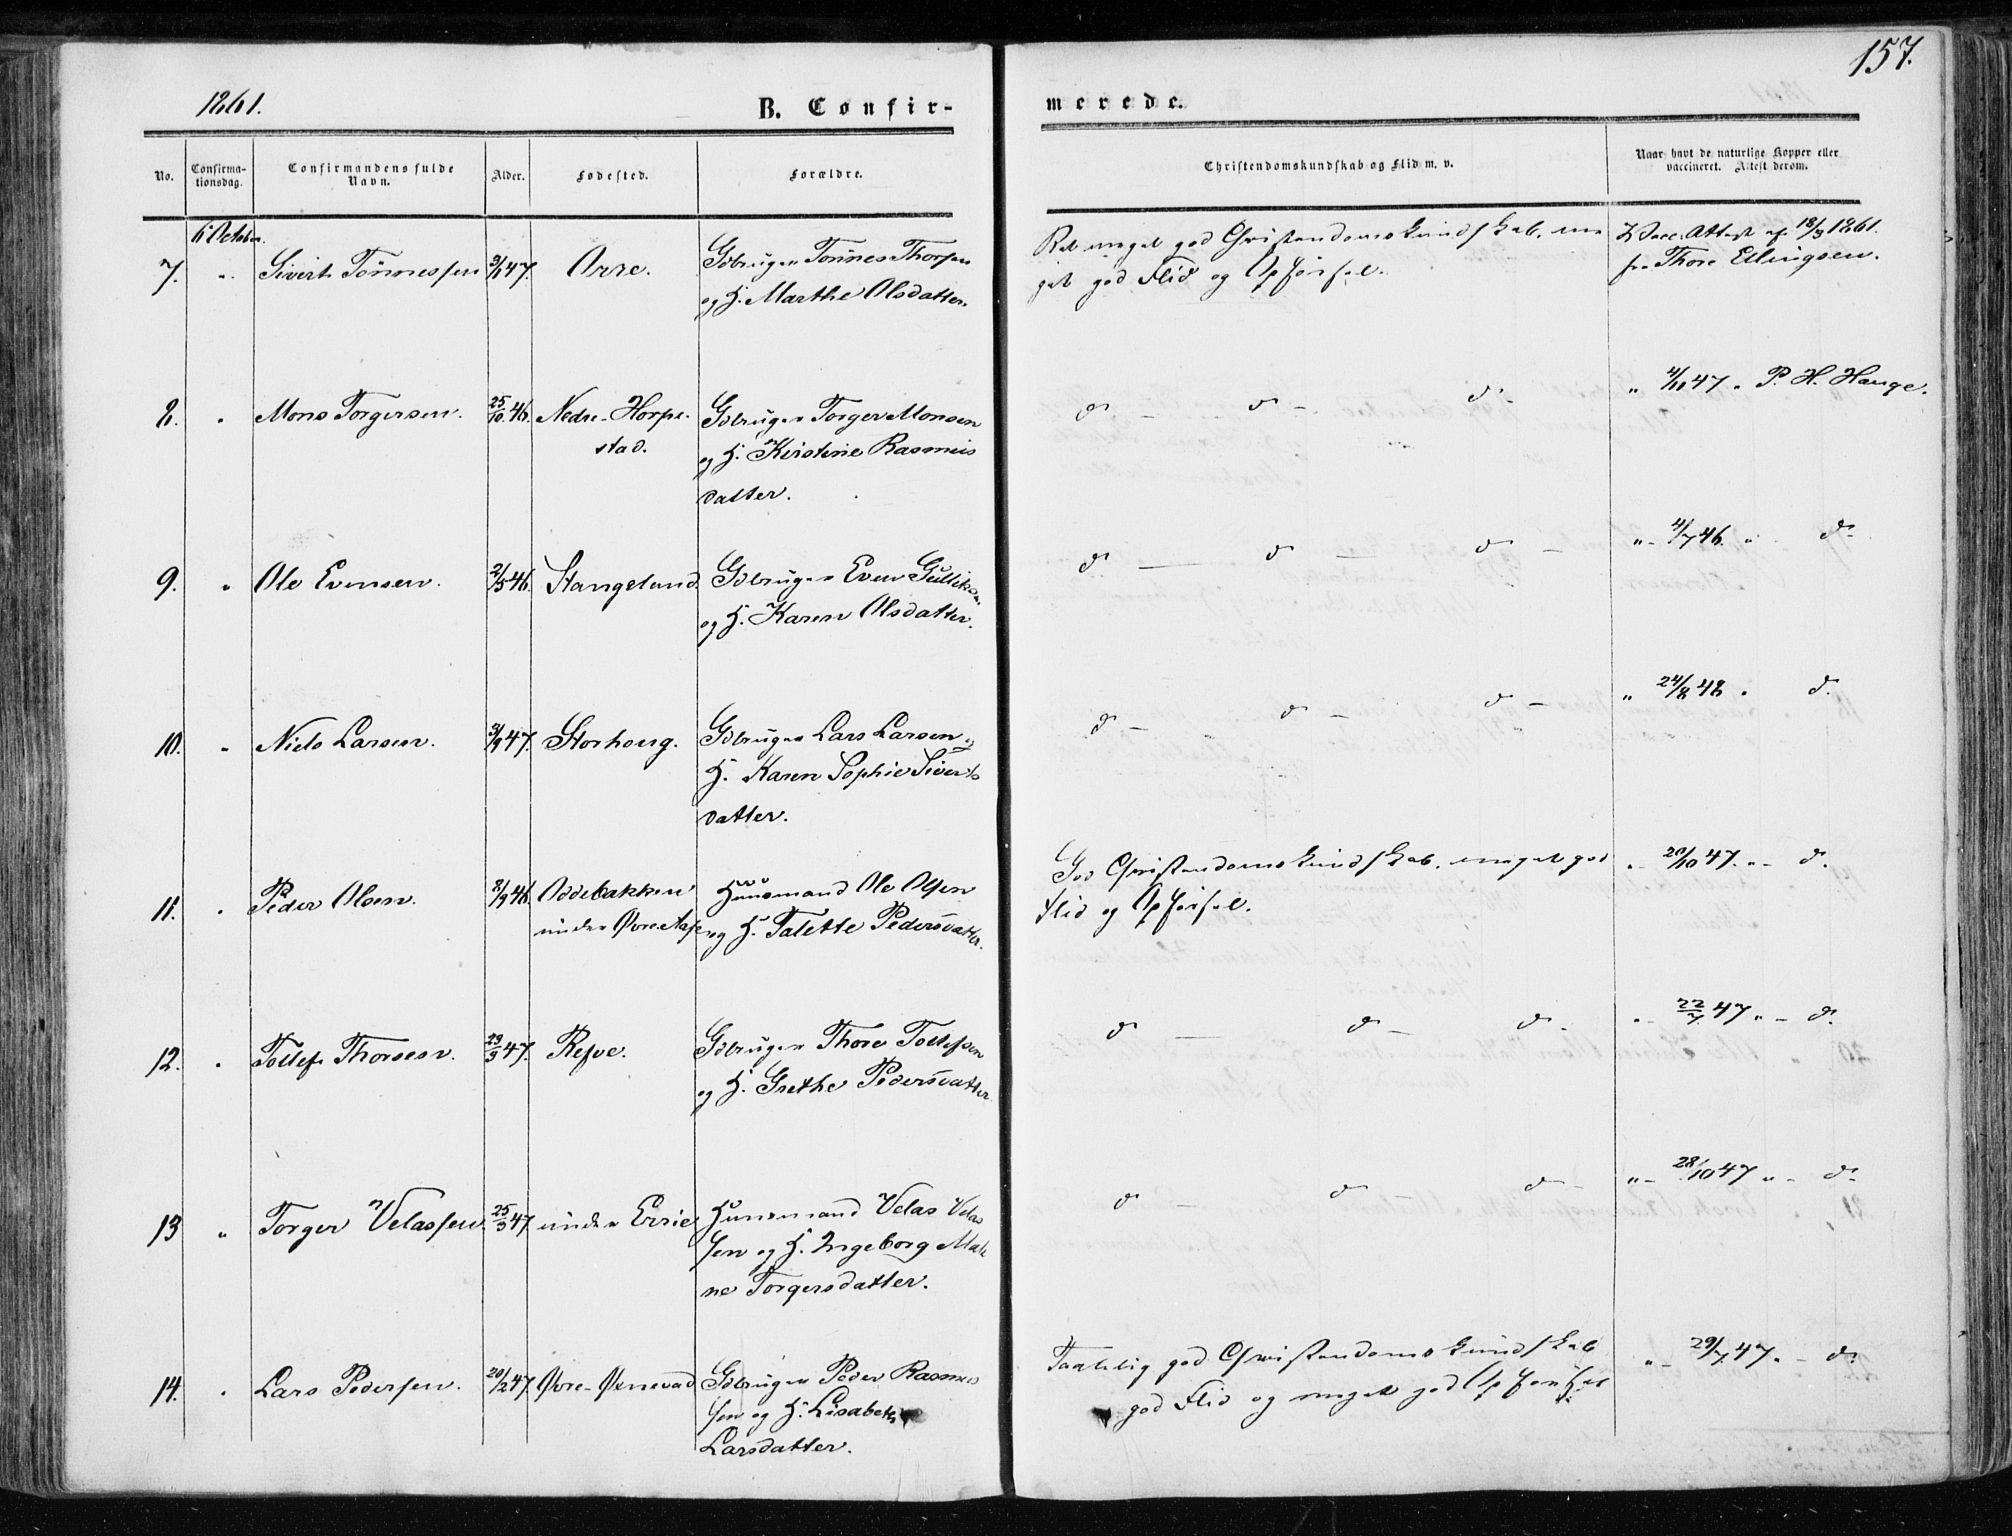 157.
1861.
B. Confir-
merede.
No.
Confirma-
tionsdag.
Confirmandens fulde
Navn.
Alder.
Fødested.
Forældre.
Christendomskundskab og Flid m. v.
Naar havt de naturlige Kopper eller
vaccineret. Attest derom.
6 October.
7. " Sivert Tönnessen 3/1 47. Orre. Gdbruger Tönnes Thorsen
og H. Marthe Olsdatter.
Ret meget god Christendomskundskab, me
get god Flid og Opførsel.
Vacc. Attest af 18/9 1861.
fra Thore Ellingsen.
8. " Mons Torgersen. 25/10 46. Nedre-Horpe
stad.
Gdbruger Torger Monsen
og H. Kirstine Rasmus
datter.
do — do — do.
" 4/10 47 " P. H. Hauge.
9. " Ole Evensen. 2/5 46. Stangeland. Gdbruger Even Gulliksen
og H. Karen Olsdatter.
do — do — do —
" - 4/7 46. " do.
10. " Niels Larsen. 3/9 47. Storhoug. Gdbruger Lars Larsen og
H. Karen Sophie Siverts
datter.
do — do — do —
" 24/8 48 " do.
11. " Peder Olsen. 8/9 46. Oddebakken
under Øvre
Huusmand Ole Olsen
og H. Talette Pedersdatter.
God Christendomskundskab, meget god
Flid og Opførsel.
" - 20/10 47. " - do.
12. " Tollef Thorsen. 29/3 47. Refve. Gdbruger Thore Tollefsen
og H. Grethe Pedersdatter
do — do — do —
" - 22/7 47 " - do.
13 " Torger Velassen. 25/3 47 under Errie Huusmand Velas Velas
sen og H. Ingeborg Male
ne Torgersdatter.
do — do — do —
" - 28/10 47 " - do.
14. " Lars Pedersen. 20/2 47. Øvre-Øxnevad Gdbruger Peder Rasmus
sen og H. Lisabeth
Larsdatter.
Taalelig god Christendomskundskab
god Flid og meget god Opførsel.
" - 29/7 47 " - do.